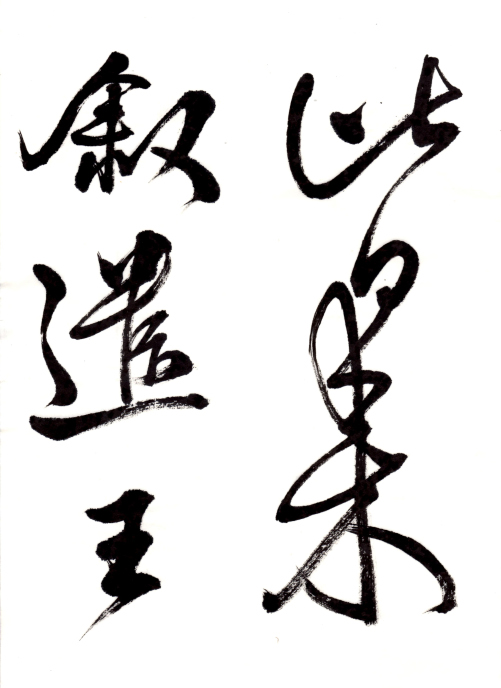 此果
叙遣王